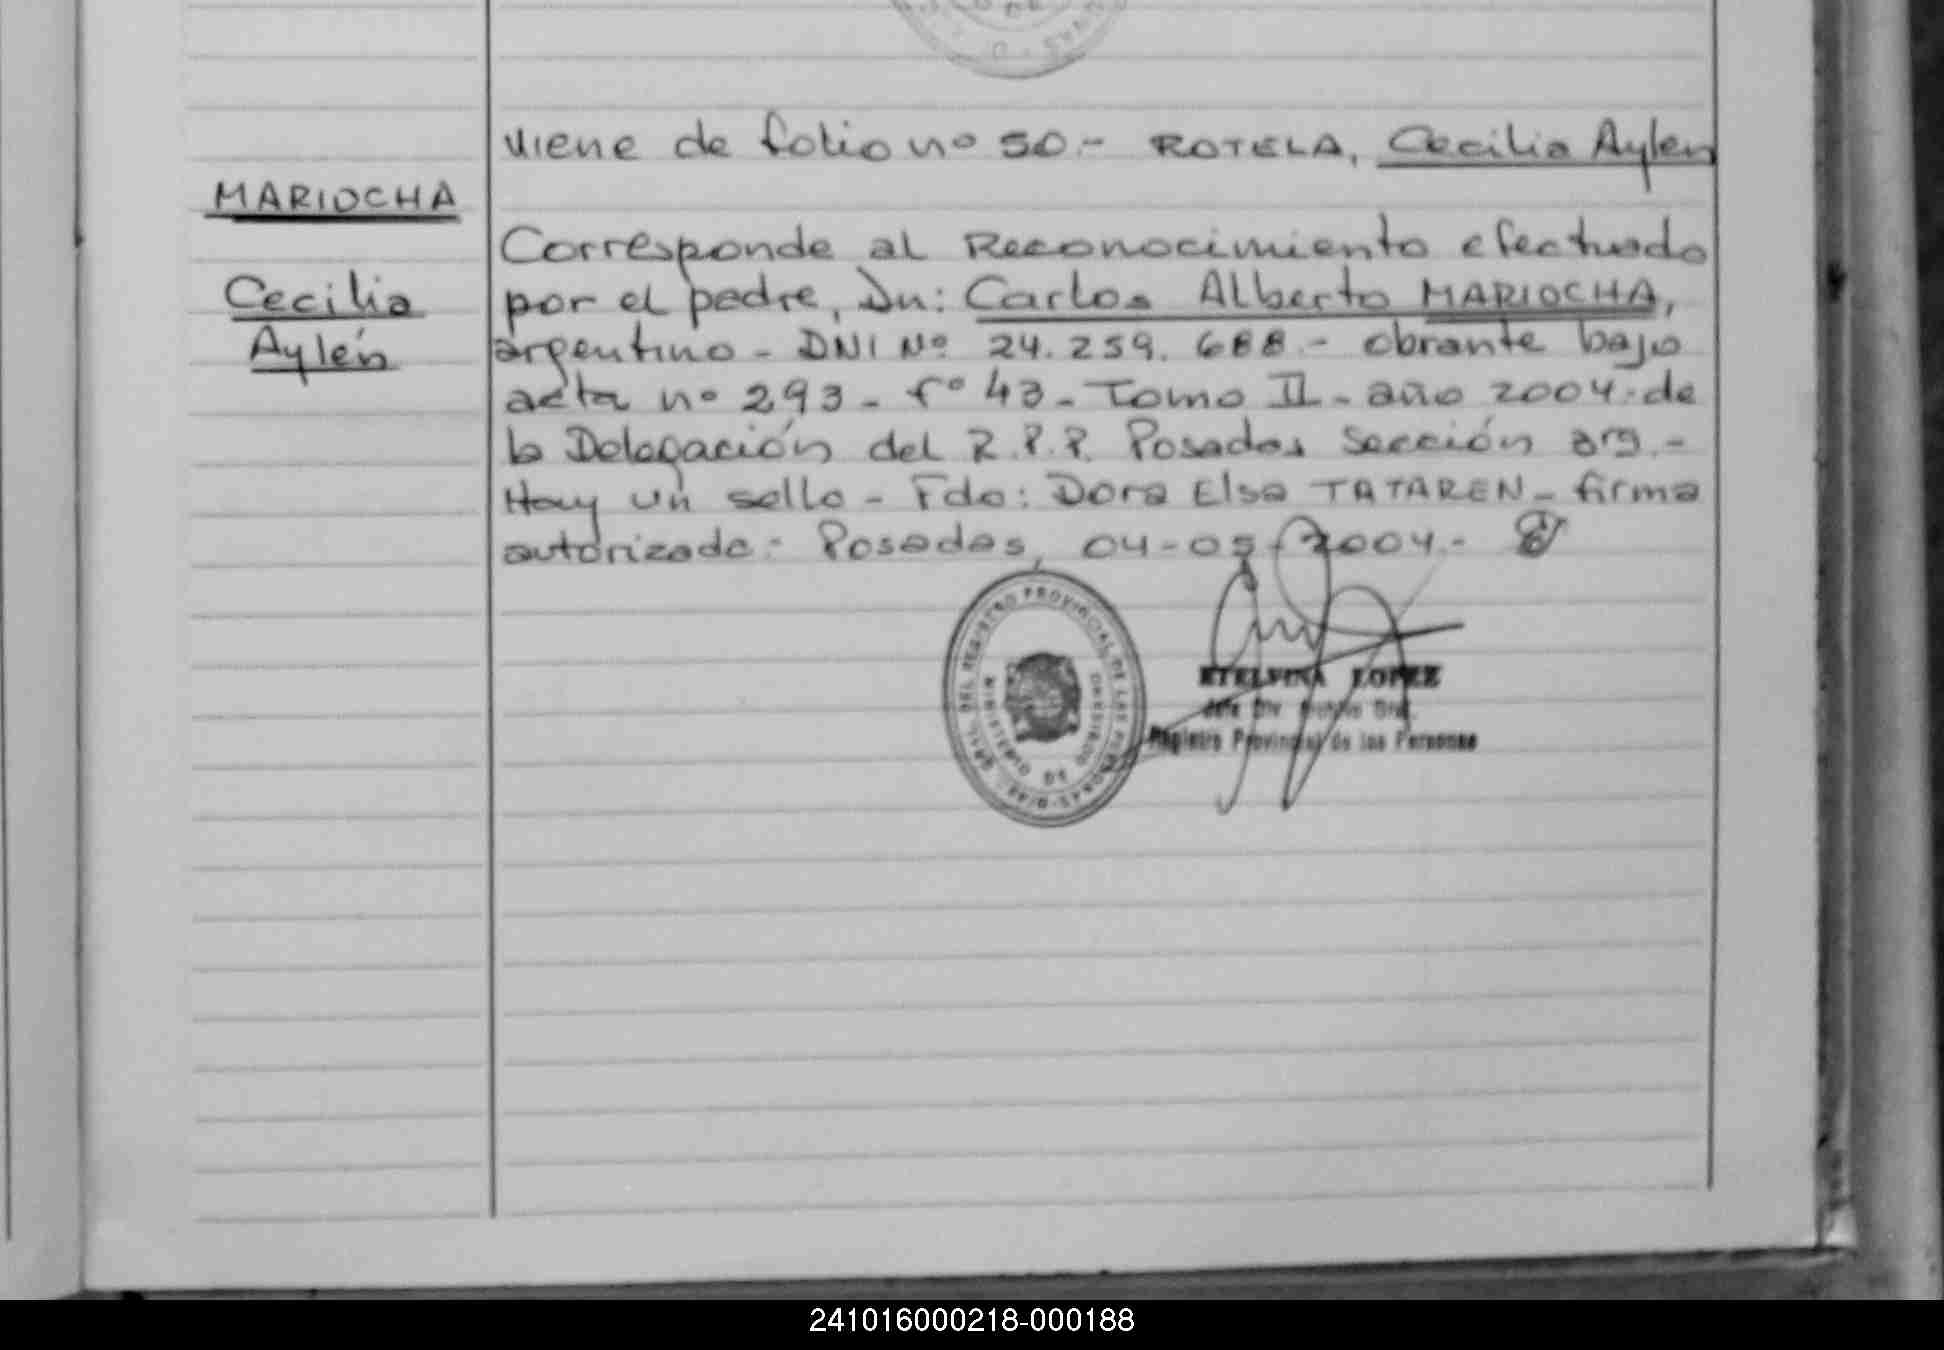 viene de folio nº 50.- ROTELA, Cecilia Aylen
MARIOCHA
Cecilia
Aylén
Corresponde al Reconocimiento efectuado
por el padre, Dn: Carlos Alberto MARIOCHA,
argentino - DNI Nº 24.259.688.- obrante bajo
acta nº 293 - fº 43 - Tomo II - año 2004. de
la Delegación del R.P.P. Posadas Sección arg.-
Hay un sello - Fdo: Dora Elsa TATAREN - firma
autorizada: Posadas, 04-05-2004.-
DEL REGISTRO PROVINCIAL DE LAS PERSONAS
MINISTERIO DE GOBIERNO
ETELVINA LOPEZ
Jefe Div. Archivo Gral.
Registro Provincial de las Personas
241016000218-000188